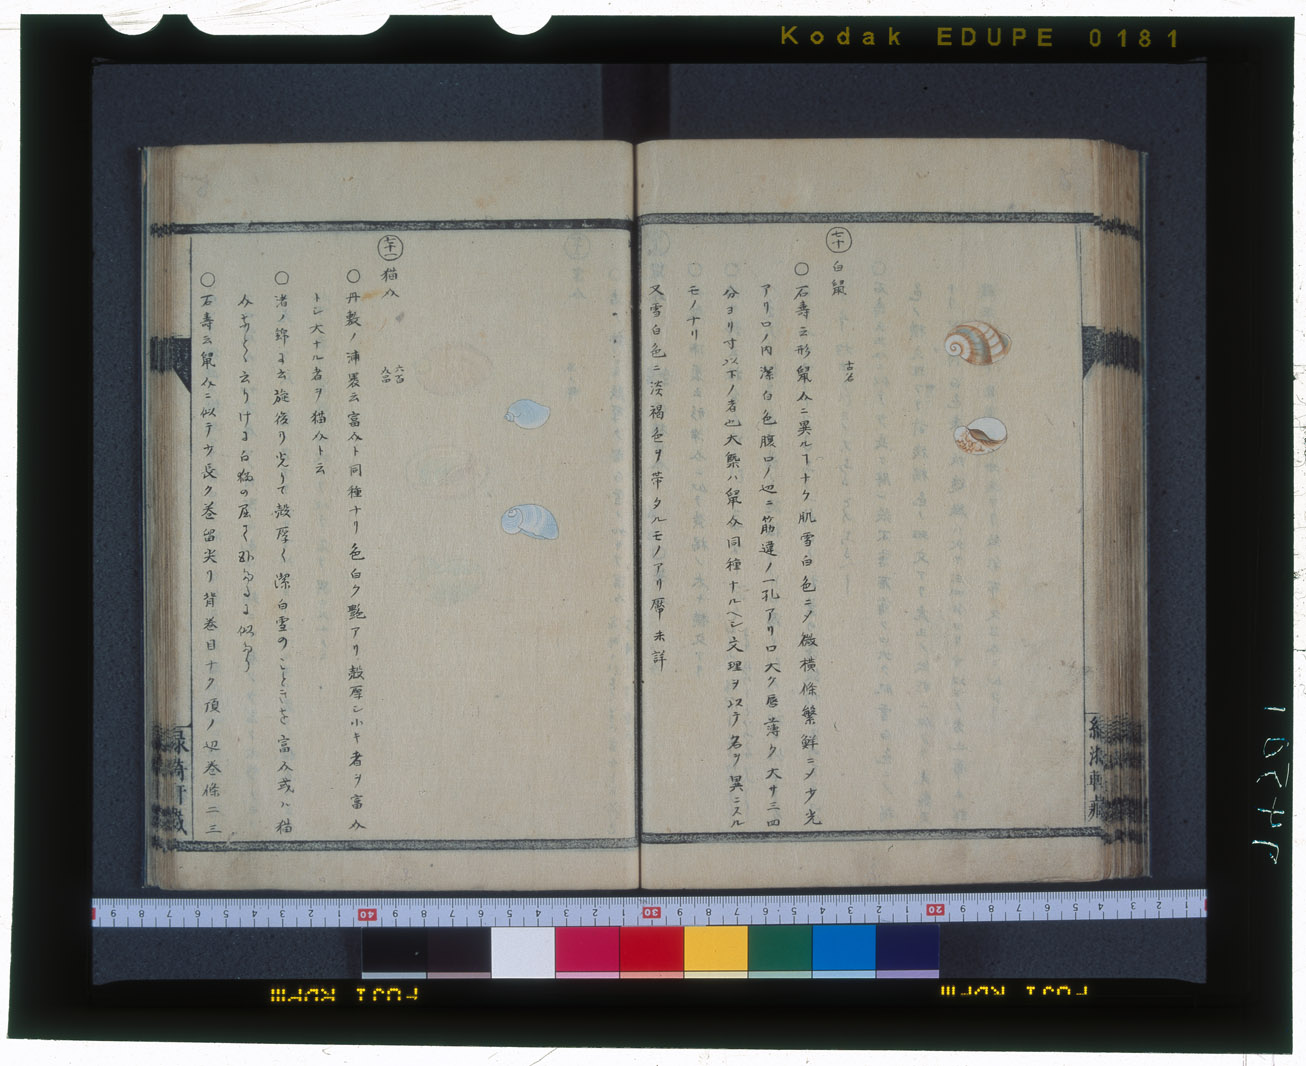 Kodak EDUPE 0181
七十
白鼠
古名
〇石壽云形鼠介ニ異ルヿナク肌雪白色ニメ微橫條繁鮮ニメ少光
アリ口ノ内潔白色腹口ノ辺ニ筋違ノ一孔アリ口大ク唇薄ク大サ三四
分ヨリ寸以下ノ者也大槩ハ鼠介同種ナルヘシ文理ヲ以テ名ヲ異ニスル
モノナリ
又雪白色ニ淡褐色ヲ帯タルモノアリ
未詳
七十一
猫介
六百
〇丹敷ノ浦裏云富介ト同種ナリ色白ク艶アリ殻厚シ小キ者ヲ富介
トシ大ナル者ヲ猫介ト云
〇渚ノ錦に云旋後り光りて殻厚く潔白雪のことき
富介或ハ猫
〇石壽云鼠介ニ似テ少長ク巻留尖リ背巻目ナク頂ノ辺巻條二三